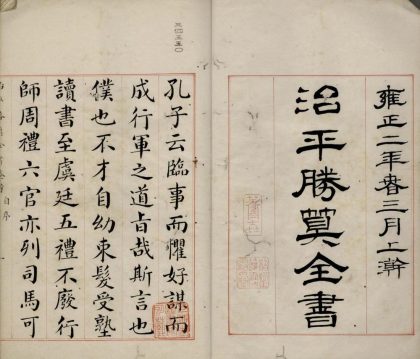 雍正二年春三月上澣
治平勝算全書
孔子云臨事而懼好謀而
成行軍之道旨哉斯言也
僕也不才自幼束髮受塾
讀書至虞廷五禮不廢行
師周禮六官亦列司馬可